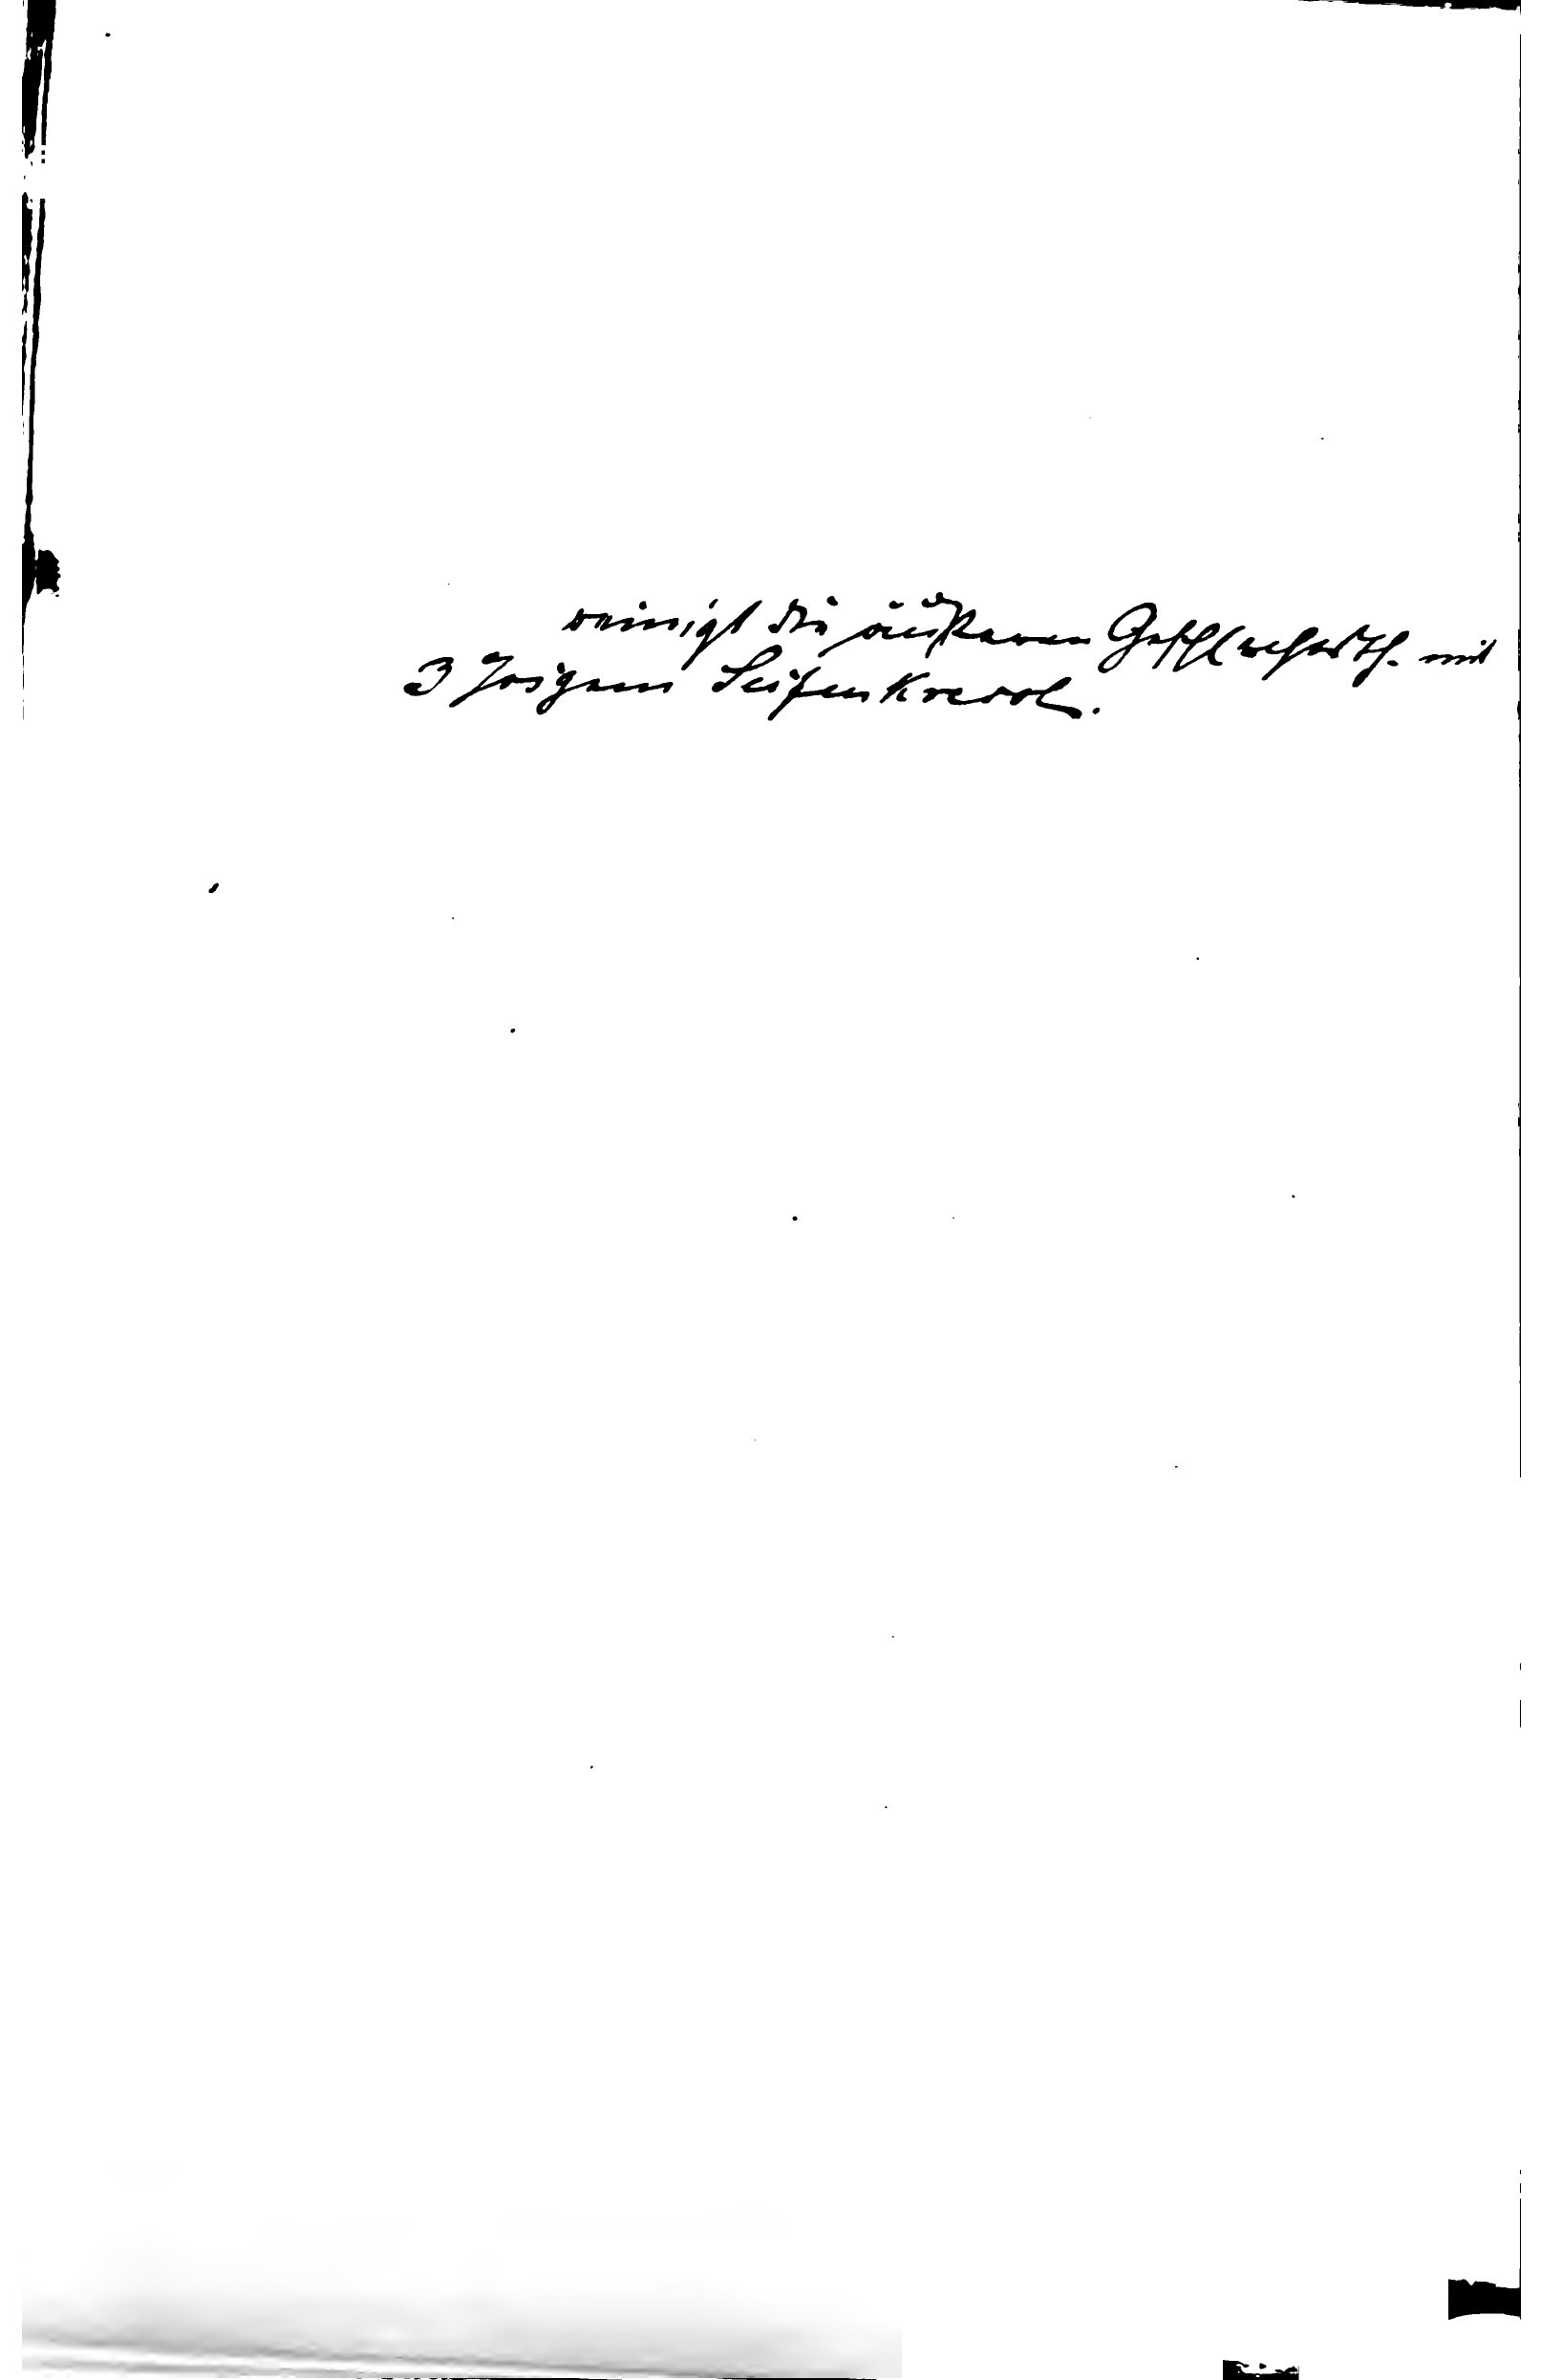 reinigt die äußeren Geschlechtsth. mit
3 %igem Seifenkresol.